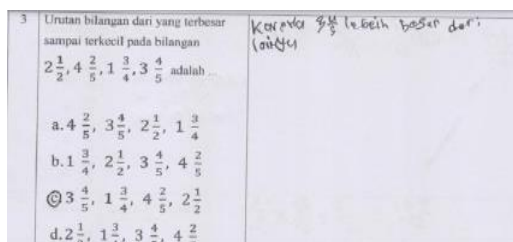 3 Urutan bilangan dari yang terbesar
sampai terkecil pada bilangan
2 1/2, 4 2/5, 1 3/4, 3 4/5 adalah ...
a. 4 2/5, 3 4/5, 2 1/2, 1 3/4
b. 1 3/4, 2 1/2, 3 4/5, 4 2/5
c 3 4/5, 1 3/4, 4 2/5, 2 1/2
d. 2 1/2, 1 3/4, 3 4/5, 4 2/5
Karena lebih besar dari